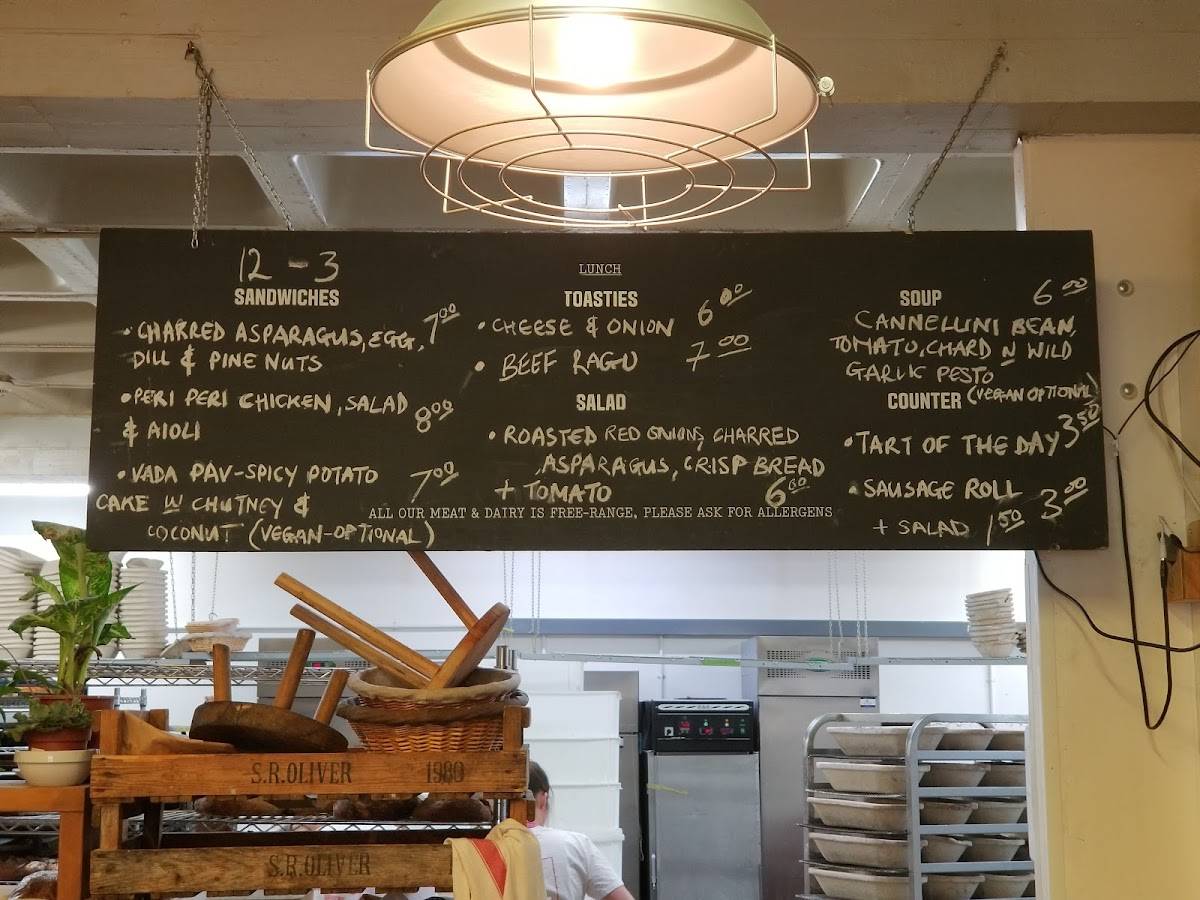 LUNCH
12 - 3
SANDWICHES
• CHARRED ASPARAGUS, EGG, 7.00
DILL & PINE NUTS
• PERI PERI CHICKEN, SALAD 8.00
& AIOLI
• VADA PAV - SPICY POTATO 7.00
CAKE W CHUTNEY &
COCONUT (VEGAN-OPTIONAL)
TOASTIES
• CHEESE & ONION 6.00
• BEEF RAGU 7.00
SALAD
• ROASTED RED ONIONS, CHARRED
ASPARAGUS, CRISP BREAD
+ TOMATO 6.00
SOUP 6.00
CANNELLINI BEAN,
TOMATO, CHARD N WILD
GARLIC PESTO
(VEGAN OPTIONAL)
COUNTER
• TART OF THE DAY 3.50
• SAUSAGE ROLL 3.00
+ SALAD 1.50
ALL OUR MEAT & DAIRY IS FREE-RANGE, PLEASE ASK FOR ALLERGENS
S.R.OLIVER 1980
S.R.OLIVER